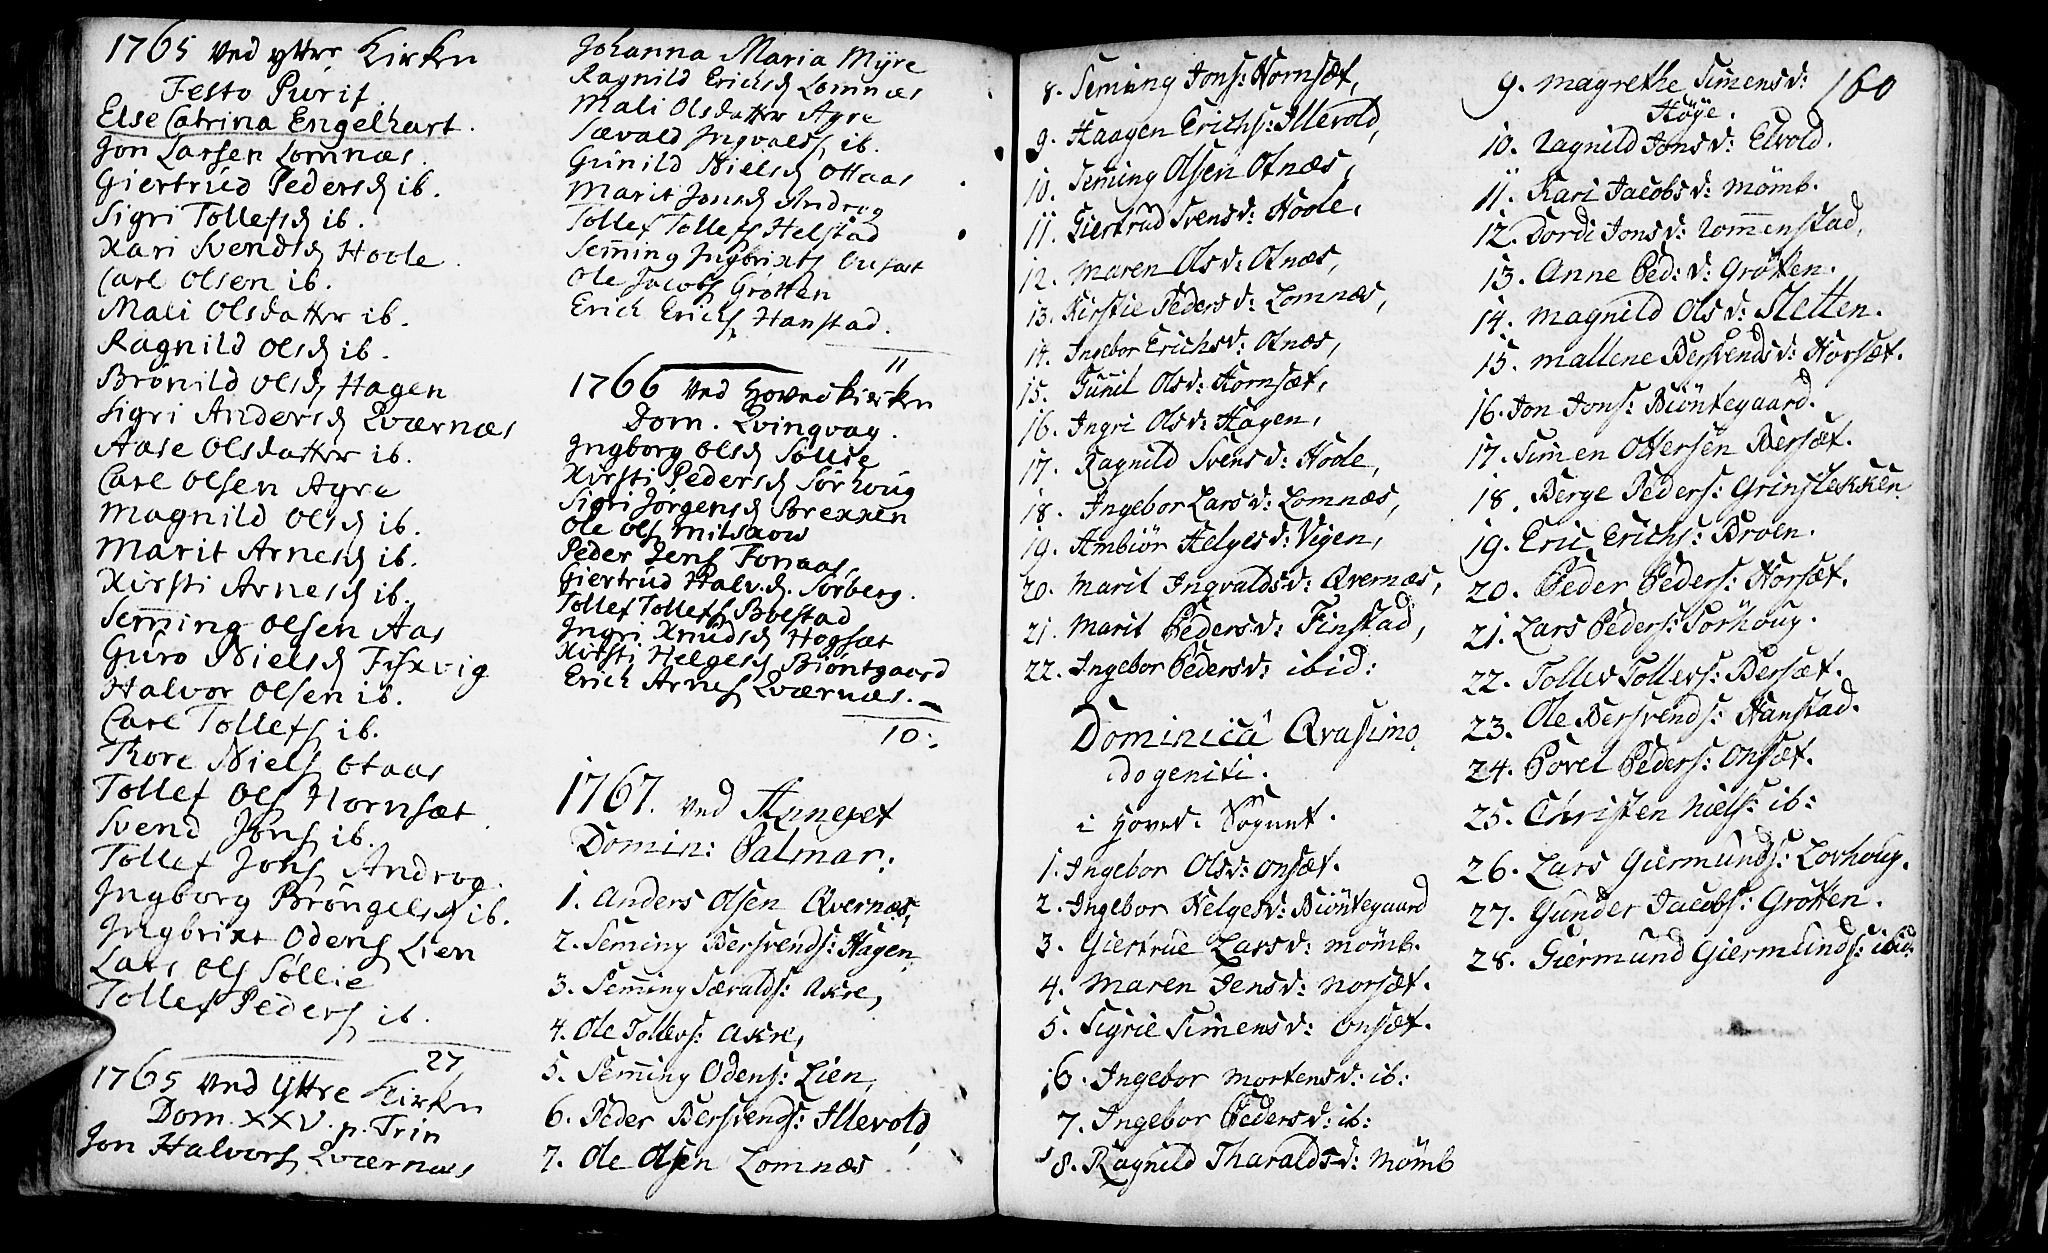 1765 ved yttre Kirken
Festo Purif.
Else Catrina Engelhart.
Jon Larsen Lomnæs.
Giertrud Pedersd ib.
Sigri Tollefsd ib.
Kari Svendsd Hoole.
Carl Olsen ib.
Mali Olsdatter ib.
Ragnild Olsd ib.
Brönild Olsd Hagen
Sigri Andersd Qværnæs
Aase Olsdatter ib.
Carl Olsen Agre
Magnild Olsd ib.
Marit Arnesd ib.
Kirsti Arnesd ib.
Seming Olsen Aas
Guro Nielsd Fiskvig
Halvor Olsen ib.
Carl Tollefs ib.
Thore Niels Otaas
Tollef Ols Hornsæt.
Svend Jons ib.
Tollef Jons Androg.
Ingborg Bröngelsd ib.
Ingbrixt Odens Lien
Lars Ols Søllie
Tollef Peders ib.
27
1765 ved yttre Kirken
Dom. XXV. p. Trin
Jon Halvors Qværnæs
Johanna Maria Myre
Ragnild Erichsd Lomnæs
Mali Olsdatter Agre
Sævald Ingvalds ib.
Gunild Nielsd Otaas
Marit Jonsd Androg
Tollef Tollefs Helstad
Seming Ingbrixts
Ole Jacobs Grøtten
Erich Erichs Hanstad.
11
1766 ved Hoved kierken
Dom. Qvinqvag.
Ingborg Olsd Søllie
Kirsti Pedersd Sørhoug
Sigri Jørgensd Brexxen
Ole Ols Mitskow
Peder Jens Fonaas.
Giertrud Halv.d. Sørberg.
Tollef Tollefs Bolstad
Ingri Knudsd Hogsæt
Kirsti Helgesd Biöntgaard
Erich Arnes Qværnæs.
10.
1767. ved Annexet
Domin: Palmar:
1. Anders Olsen Qvernæs,
2. Seming Bersvends: Hagen,
3. Seming Sævalds: Akre,
4. Ole Tollevs: Akre,
5. Seming Odens: Lien,
6. Peder Bersvends: Illevold,
7. Ole Olsen Lomnæs,
8. Seming Jons: Hornsæt,
9. Haagen Erichs: Illevold,
10. Seming Olsen Otnæs,
11. Giertrud Svensd: Hoole,
12. Maren Olsd: Otnæs,
13. Kirstie Pedersd: Lomnæs,
14. Ingebor Erichsd: Otnæs,
15. Gunil Olsd: Hornsæt,
16. Ingri Olsd: Hagen,
17. Ragnild Svensd: Hoole,
18. Ingebor Larsd: Lomnæs,
19. Ambiör Helgesd: Vigen,
20. Marit Ingvaldsd: Qvernæs,
21. Marit Pedersd: Finstad,
22. Ingebor Pedersd: ibid:
Dominica Qvasimo
dogeniti.
i Hoved Sognet.
1. Ingebor Olsd: Onsæt.
2. Ingebor Helgesd: Biöntegaard
3. Giertrue Larsd: Mömb.
4. Maren Jensd: Norsæt.
5. Sigrie Simensd: Onsæt.
6. Ingebor Mortensd: ib:
7. Ingebor Pedersd: ib:
8. Ragnild Tharaldsd: Mömb
160
9. Magrethe Simensd:
Høye.
10. Ragnild Jonsd: Elvold.
11. Kari Jacobsd: Mömb.
12. Dordi Jonsd: Rommenstad,
13. Anne Ped:d: Grötten.
14. Magnild Olsd: Sletten.
15. Mallene Bersvendsd: Horsæt.
16. Jon Jons: Biöntegaard.
17. Simen Ottersen Bersæt.
18. Berge Peders: Grinslekken
19. Eric Erichs: Broen.
20. Peder Peders: Horsæt.
21. Lars Peders: Sörhoug.
22. Tollev Tollevs: Bersæt.
23. Ole Bersvends: Hanstad.
24. Povel Peders: Onsæt.
25. Christen Niels: ib:
26. Lars Giermunds: Lovhoug.
27. Gunder Jacobs: Grötten.
28. Giermund Giermunds: ibid: